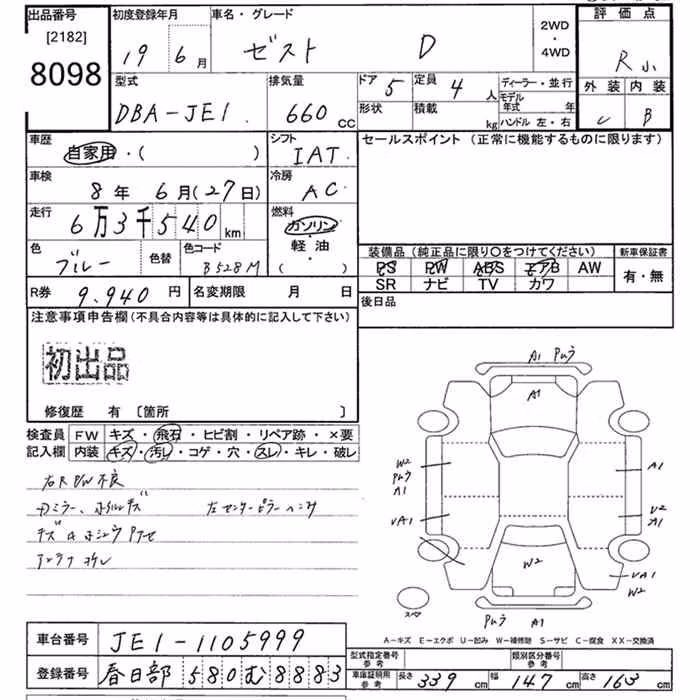 出品番号 初度登録年月 車名・グレード 2WD・4WD 評価点
[2182]
8098
19 6月 ゼスト D R小
型式 排気量 ドア 5 定員 4人 ディーラー・並行 外装 内装
DBA-JE1 660 cc 形状 積載 kg モデル年式 年 B
ハンドル 左・右
車歴 シフト セールスポイント (正常に機能するものに限ります)
自家用・( ) IAT
車検 冷房
8年 6月(27日) AC
走行 燃料
6万3千540km ガソリン・軽油・( )
色 色替 色コード
ブルー B528M
装備品 (純正品に限り○をつけてください) 新車保証書
PS PW ABS エアB AW 有・無
SR ナビ TV カワ
R券 9,940円 名変期限 月 日 後日品
注意事項申告欄(不具合内容等は具体的に記入して下さい)
初出品
修復歴 有 [箇所 ]
検査員 FW キズ・飛石・ヒビ割・リペア跡・×要
記入欄 内装 キズ・汚レ・コゲ・穴・スレ・キレ・破レ
右R PW 不良
左センターピラーヘコミ
A1
A1
W2
A1
A1
UA1
U2
A1
W2
UA1
W2
A1
スペア
A-キズ E-エクボ U-凹み W-補修跡 S-サビ C-腐食 XX-交換済
車台番号 JE1-1105999
型式指定番号 参考 類別区分番号 参考
登録番号 春日部 580 む 8883
車庫証明用 参考 長さ 339cm 幅 147cm 高さ 163cm